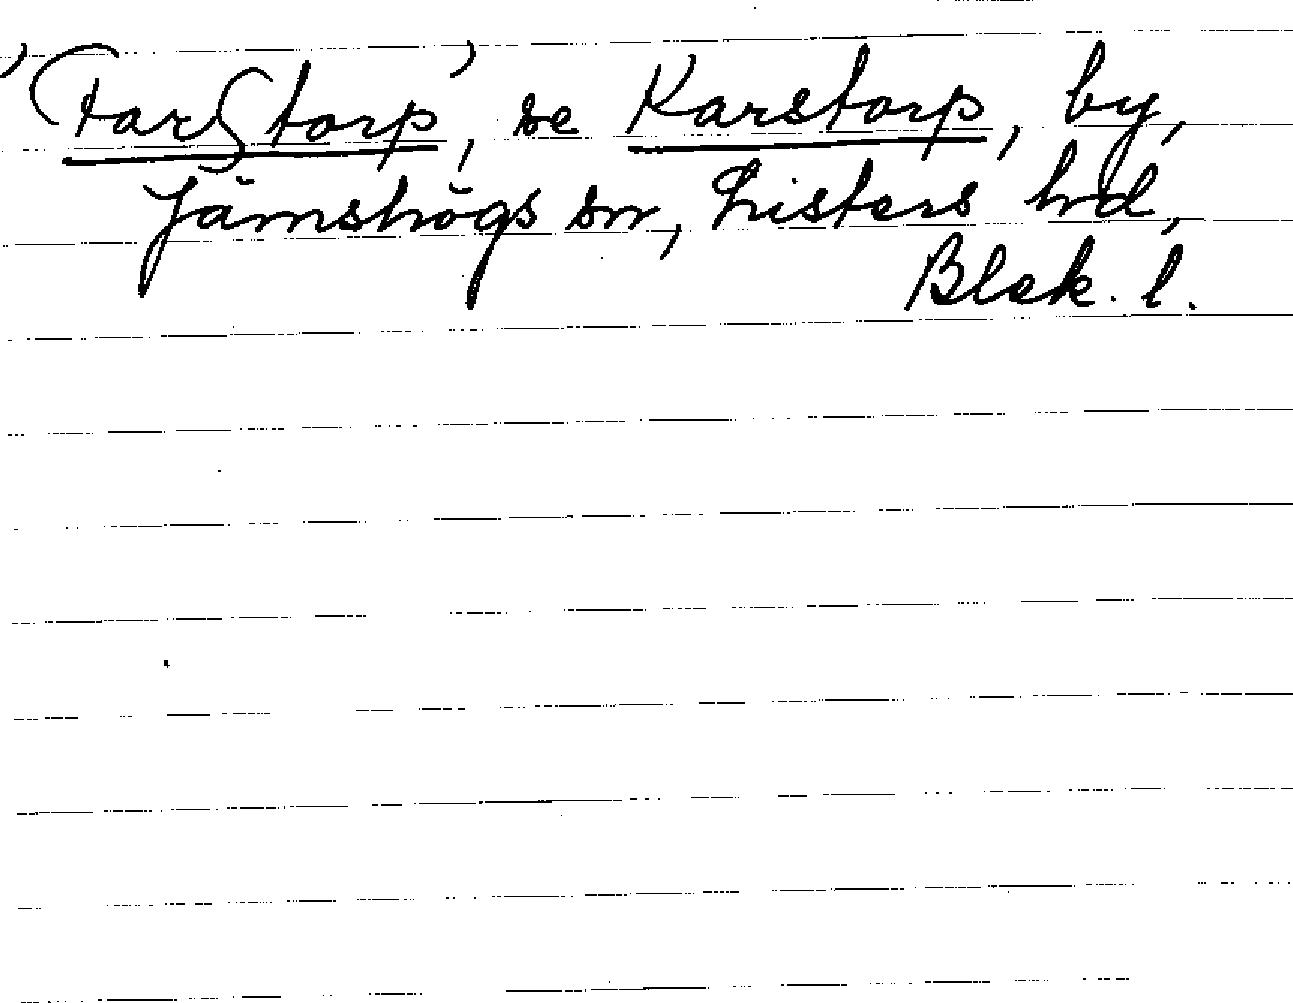 ’FarStorp’, se Karstorp, by,
Jämshögs sn, Listers hd,
Blek. l.